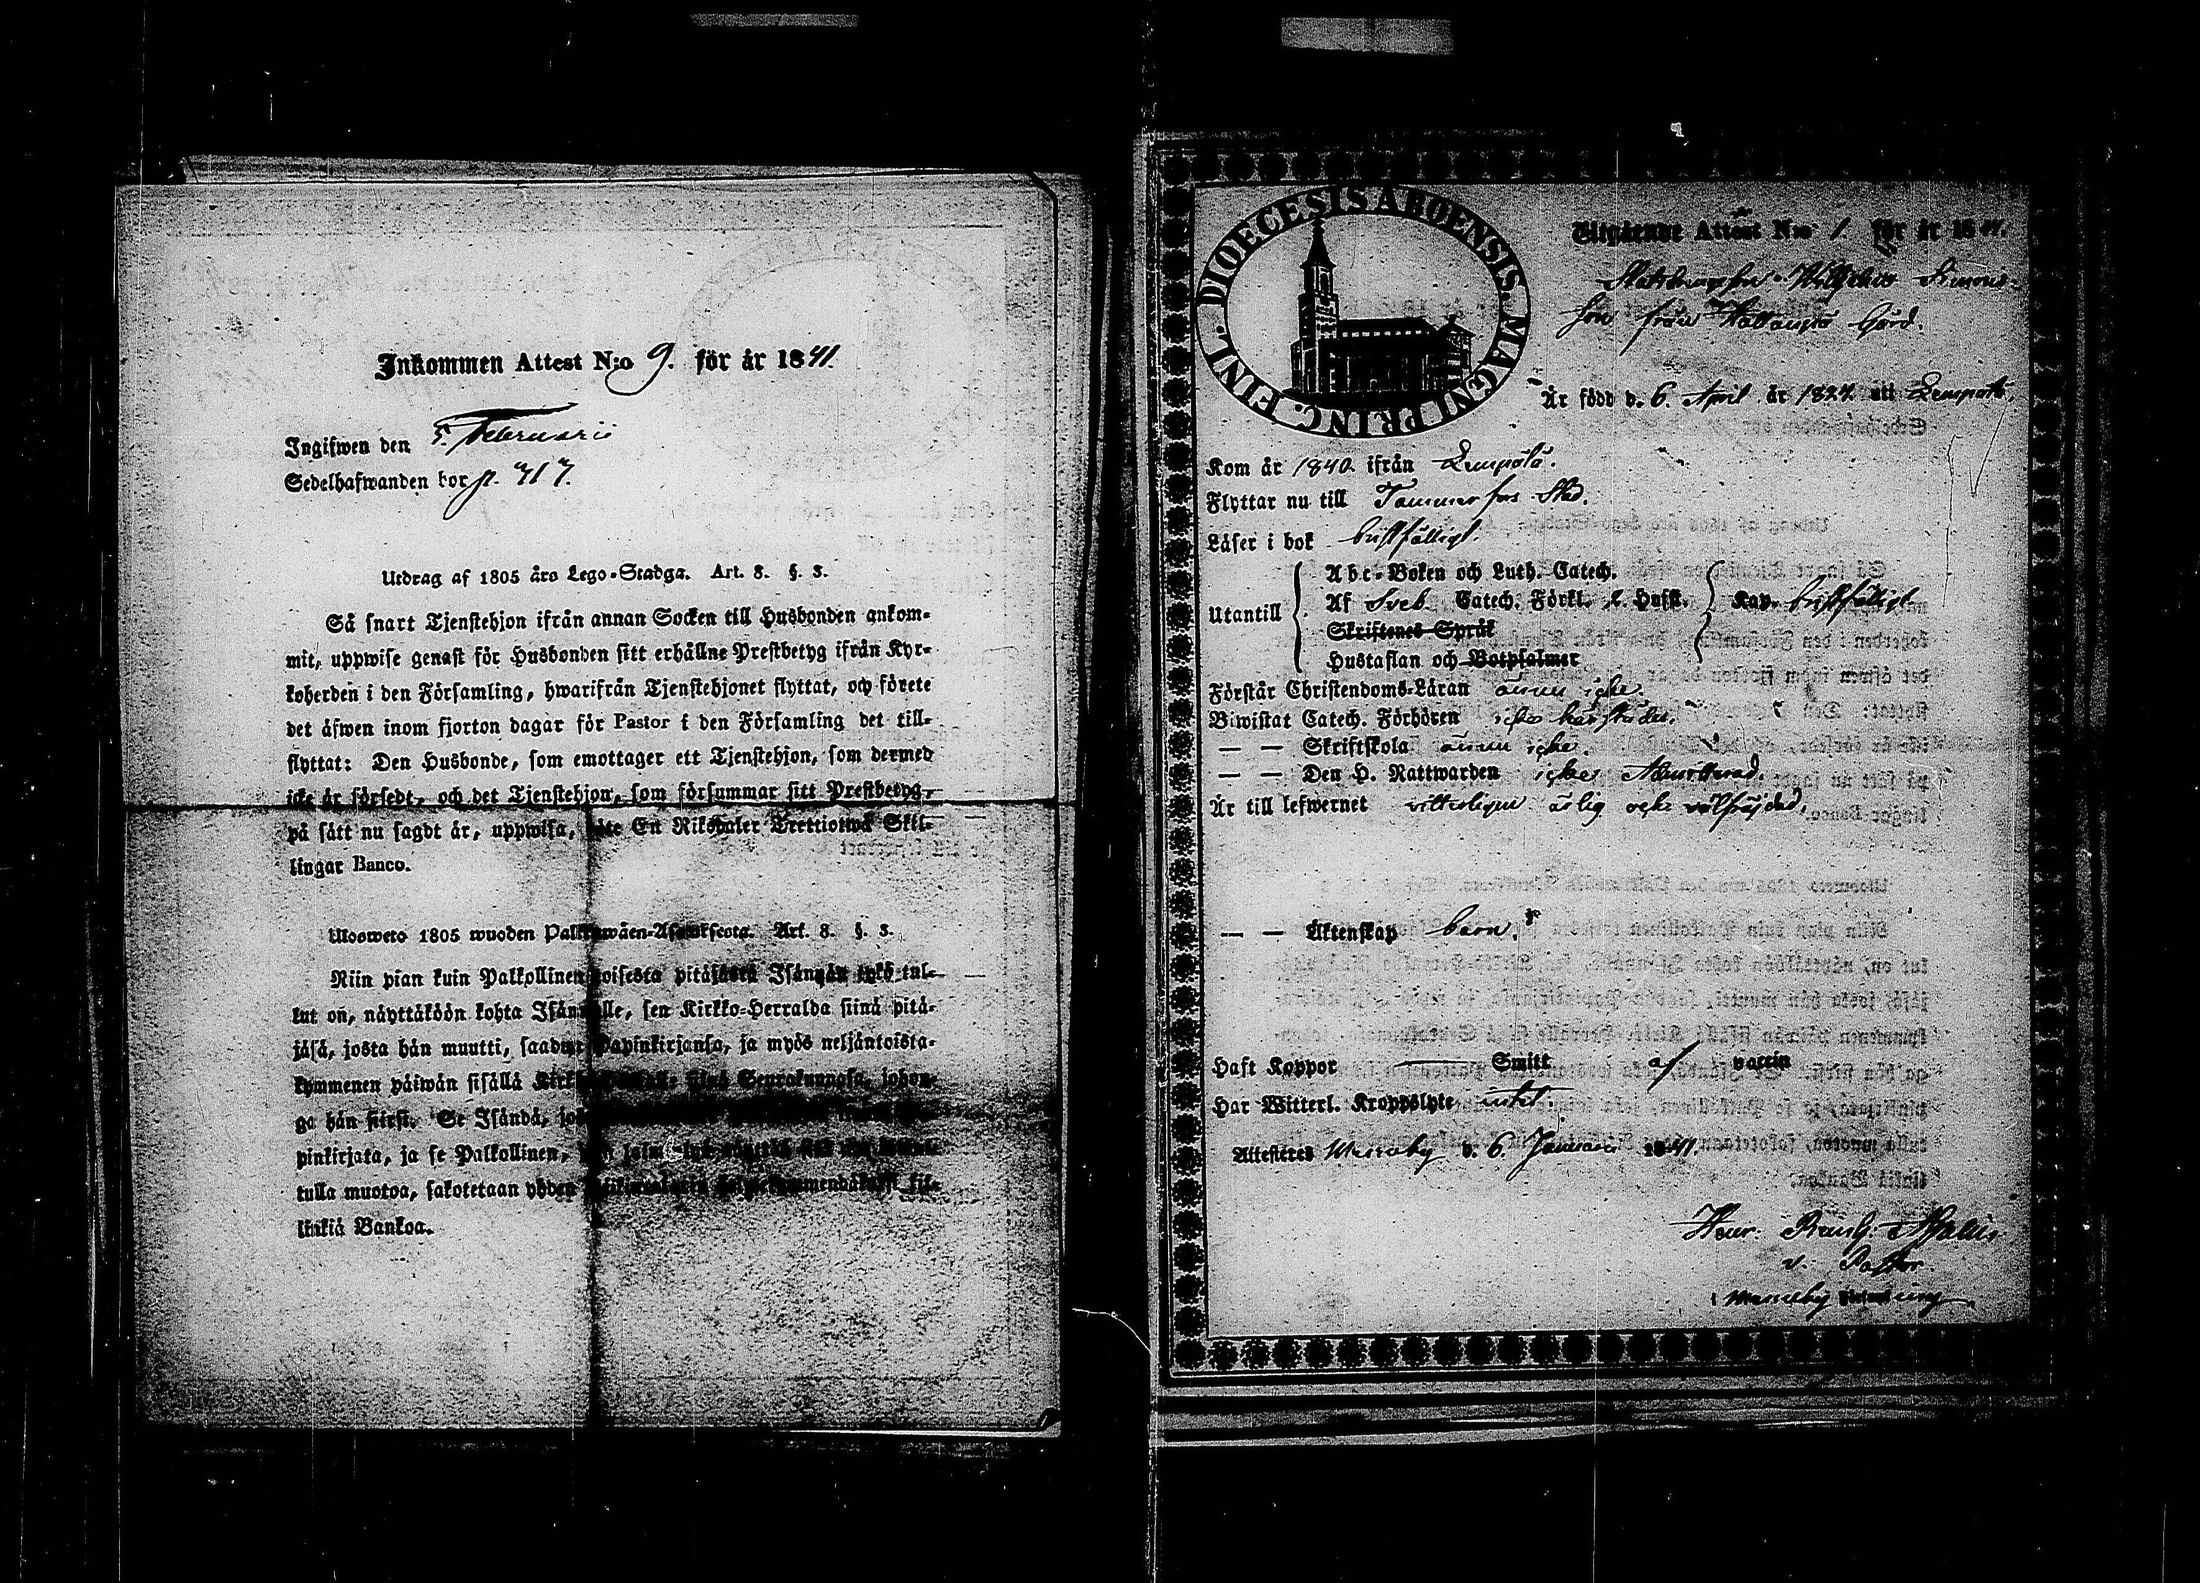 Inkommen Attest N:o 9. för år 1841.
Ingifwen den 5. Februarii
Sedelhafwanden bor p. 717.
Utdrag af 1805 åro Lego-Stadga. Art. 8. §. 3.
Så snart Tjenstehjon ifrån annan Socken till Husbonden ankom-
mit, uppwise genast för Husbonden sitt erhållne Prestbetyg ifrån Kyr-
koherden i den Församling, hwarifrån Tjenstehjonet flyttat, och förete
det äfwen inom fjorton dagar för Pastor i den Församling det till-
flyttat: Den Husbonde, som emottager ett Tjenstehjon, som dermed
icke är försedt, och det Tjenstehjon, som försummar sitt Prestbetyg,
på sätt nu sagdt är, uppwisa, böte En Riksdaler Trettiotwå Skil-
lingar Banco.
Ulosweto 1805 wuoden Palkkawäen-Asetuksesta. Art. 8. §. 3.
Niin pian kuin Palkollinen toisesta pitäjästä Isännän tykö tul-
lut on, näyttäköön kohta Isännälle, sen Kirkko-Herralda siinä pitä-
jäsä, josta hän muutti, saadun Papinkirjansa, ja myös neljäntoista-
kymmenen päiwän sisällä Seurakunnosa, johon-
ga hän siirsi. Se Isändä, jo
pinkirjata, ja se Palkollinen,
tulla muotoa, sakotetaan yhden sil-
linkiä Bankoa.
DIOECESIS ABOENSIS. MAGNI PRINC. FINL.
Utgående Attest N:o 1 för år 1841.
Simons-
son från Gård.
Är född d. 6. April år 1827. uti Lempoila.
Kom år 1840. ifrån Lempoila.
Flyttar nu till Tammerfors Stad.
Läser i bok bristfälligt.
Utantill
Abc-Boken och Luth. Catech.
Af Sveb. Catech. Förkl. l. Husk.
Skriftenes Språk
Hustaflan och Botpsalmer
Kap. bristfälligt
Förstår Christendoms-Läran ännu icke.
Biwistat Catech. Förhören icke härstädes.
— — Skriftskola ännu icke.
— — Den H. Nattwarden icke Admitterad.
Är till lefwernet witterligen ärlig och wälfrejdad.
— — Äktenskap barn.
Haft Koppor — Smitt af vaccin
Har Witterl. Kroppslyte intet
Attesteres Messuby d. 6. Januari 1841.
Henr.
v. Pastor.
i Messuby